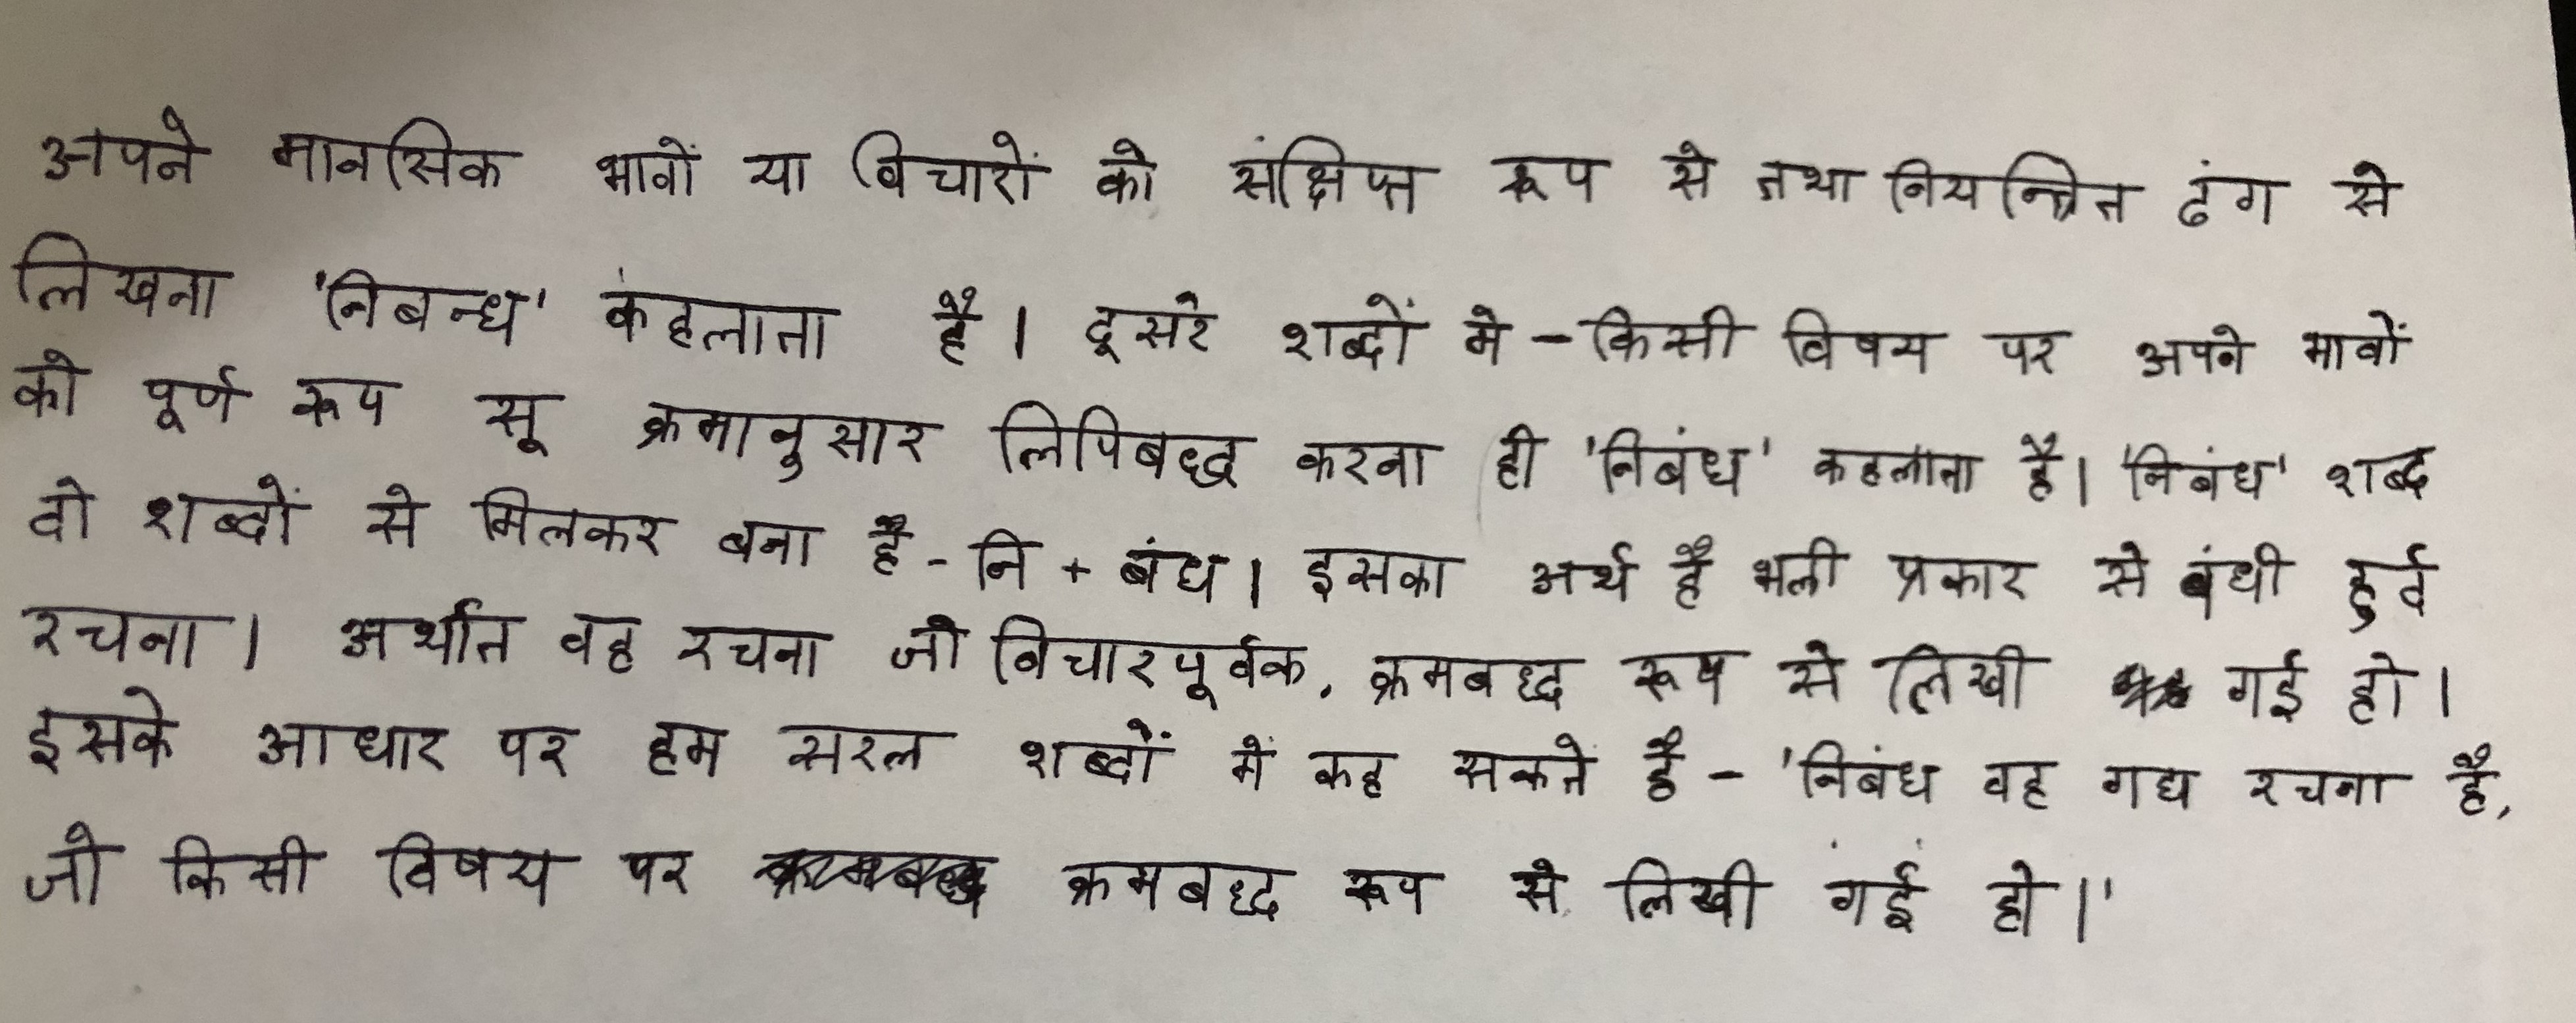 अपने मानसिक भावों या विचारों को संक्षिप्त रूप से तथा नियन्त्रित ढंग से
लिखना 'निबन्ध' कहलाता है। दूसरे शब्दों मे - किसी विषय पर अपने भावों
को पूर्ण रूप सू क्रमानुसार लिपिबद्ध करना ही 'निबंध' कहलाता है। 'निबंध' शब्द
दो शब्दों से मिलकर बना है - नि + बंध। इसका अर्थ है भली प्रकार से बंधी हुई
रचना। अर्थात वह रचना जो विचारपूर्वक, क्रमबद्ध रूप से लिखी गई हो।
इसके आधार पर हम सरल शब्दों में कह सकते है - 'निबंध वह गद्य रचना है,
जो किसी विषय पर क्रमबद्ध रूप से लिखी गई हो।'